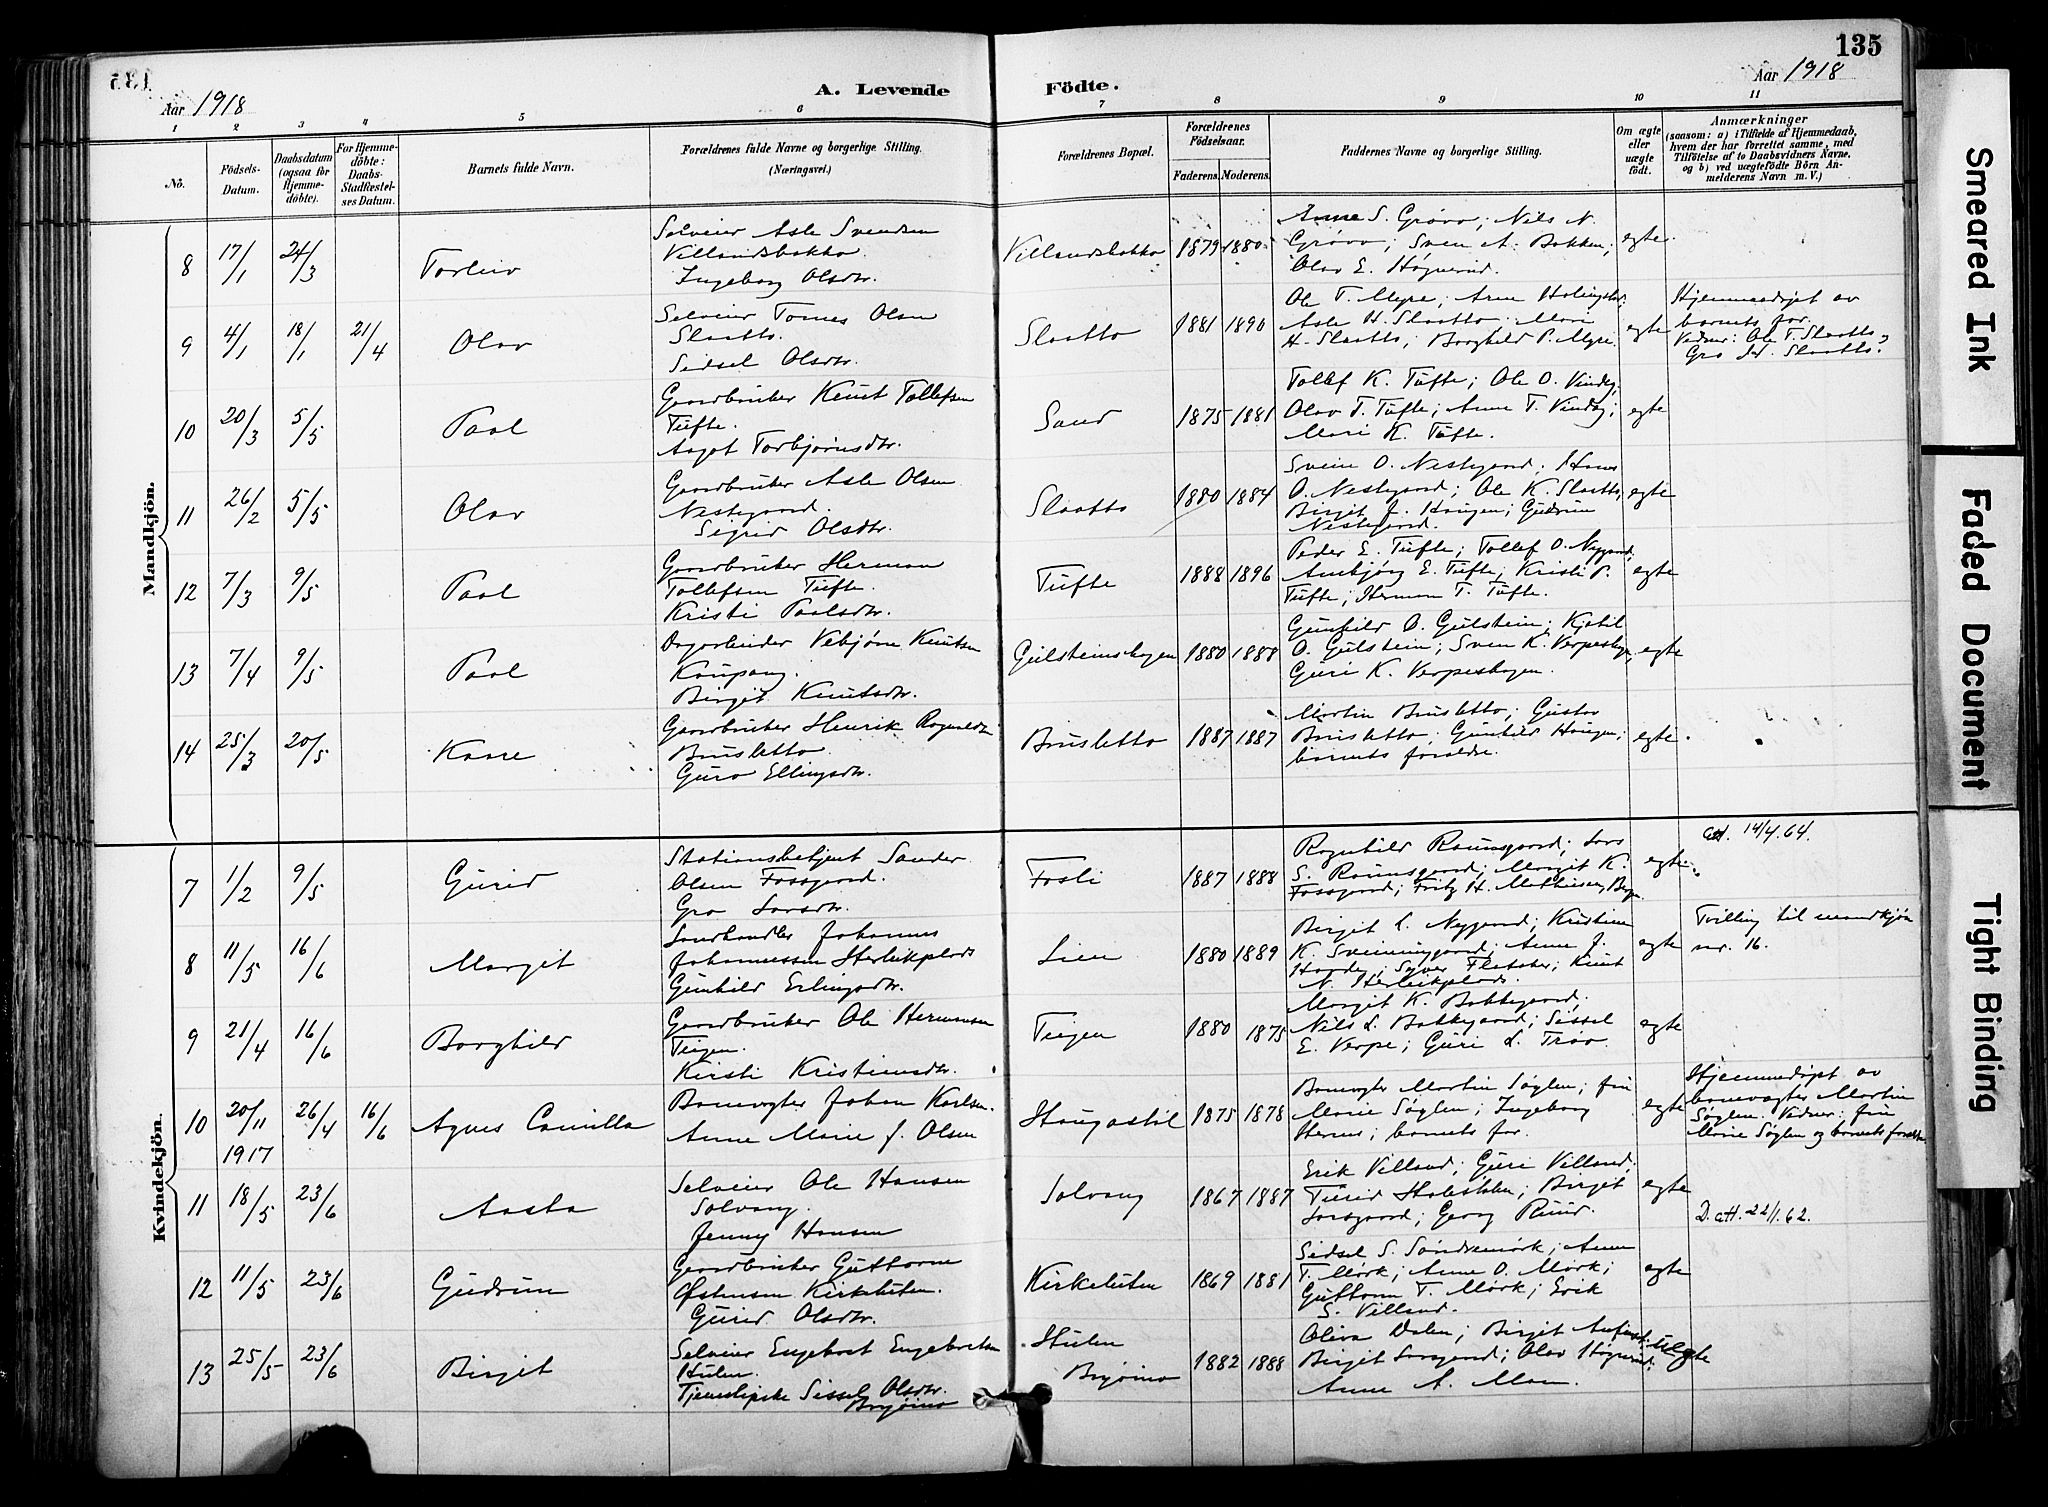 135
Aar 1918
A. Levende
Födte.
Aar 1918
1 2 3 4 5 6 7 8 9 10 11
No.
Födsels-Datum.
Daabsdatum (ogsaa for Hjemmedöbte).
For Hjemmedöbte: Daabs-Stadfæstelses Datum.
Barnets fulde Navn.
Forældrenes fulde Navne og borgerlige Stilling.
(Næringsvei.)
Forældrenes Bopæl.
Forældrenes Födselsaar.
Faderens. Moderens.
Faddernes Navne og borgerlige Stilling.
Om ægte eller uægte födt.
Anmærkninger
(saasom: a) i Tilfælde af Hjemmedaab, hvem der har forrettet samme, med Tilföielse af to Daabsvidners Navne, og b) ved uægtefödte Börn Anmelderens Navn m. V.)
Mandkjön.
8 17/1 24/3 Torleiv
Selveier Asle Svendsen
Villandsbakko
Ingeborg Olsdtr.
Villandsbakko 1879 1880
Anne S. Grøvo; Nils N.
Grøvo; Sven A. Bakken;
Olav E. Høgnerud.
egte.
9 4/1 18/1 21/4 Olav
Selveier Tomes Olsen
Slaatto.
Sidsel Olsdtr.
Slaatto 1881 1890
Ole T. Myre; Arne
Asle H. Slaatto; Mari
H. Slaatto; Borghild P. Myre.
egte
Hjemmedøpt av
barnets far.
Vidner: Ole T. Slaatto
Gro Slaatto.
10 20/3 5/5 Paal
Gaardbruker Knut Tollefsen
Tufte.
Aagot Torbjørnsdtr.
Sand 1875 1881
Tollef K. Tufte; Ole O. Vindeg;
Olav T. Tufte; Anne T. Vindeg;
Mari K. Tufte.
egte
11 26/2 5/5 Olav
Gaardbruker Asle Olsen
Nestegaard.
Sigrid Olsdtr.
Slaatto 1880 1884
Svein O. Nestegaard; Hans
O. Nestegaard; Ole K. Slaatto,
Birgit J. Haugen; Gudrun
Nestegaard.
egte
12 7/3 9/5 Paal
Gaardbruker Herman
Tollefsen Tufte.
Kristi Paalsdtr.
Tufte 1888 1896
Peder E. Tufte; Tollef O. Nygaard;
Ambjørg E. Tufte; Kristi P.
Tufte; Herman T. Tufte.
egte
13 7/4 9/5 Paal
Dagarbeider Vebjørn Knutsen
Kaupang.
Birgit Knutsdtr.
Gulsteinshagen 1880 1888
Gunhild O. Gulstein; Kjetil
O. Gulstein; Sven K. Verpeshagen,
Guri K. Verpeshagen.
egte
14 25/3 20/5 Kaare
Gaardbruker Henrik Ragnvaldsen
Brusletto.
Guro Ellingsdtr.
Brusletto 1887 1887
Martin Brusletto; Gustav
Brusletto; Gunhild Haugen;
barnets foreldre.
egte.
Kvindekjön.
7 1/2 9/5 Gurid
Stationsbetjent Sander
Olsen Fossgaard.
Gro Larsdtr.
Fosli 1887 1888
Ragnhild Raunsgaard; Lars
S. Raunsgaard; Margit K.
Fossgaard; Fritz H. Mathiesen, Bergen
egte.
att. 14/4.64.
8 11/5 16/6 Margit
Landhandler Johannes
Johannessen Herleikplads
Gunhild Erlingsdtr.
Lien 1880 1889
Birgit L. Nygaard; Kristine
K. Sveinungaard; Anne J.
Haande; Syver Fletaker; Knut
N. Herleikplads.
egte
Tvilling til mandkjøn
nr. 16.
9 21/4 16/6 Borghild
Gaardbruker Ole Hermansen
Teigen.
Kirsti Kristiansdtr.
Teigen 1880 1875
Margit K. Bakkegaard;
Nils L. Bakkegaard; Sissel
E. Verpe; Guri L. Trao.
egte
10 20/11 1917 26/4 16/6 Agnes Camilla
Banevogter Johan Karlsen.
Anne Marie f. Olsen
Haugastøl 1875 1878
Banevogter Martin Søglen; fru
Marie Søglen; Ingeborg
barnets far.
egte
Hjemmedøpt av
banevogter Martin
Søglen. Vidner: fru
Marie Søglen og barnets forældre
11 18/5 23/6 Aasta
Selveier Ole Hansen
Solvang.
Jenny Hansen
Solvang 1867 1887
Erik Villand; Guri Villand;
Turid Birgit
Larsgaard; Georg Ruud.
egte
D. att. 22/1.62.
12 11/5 23/6 Gudrun
Gaardbruker Guttorm
Østensen Kirkeluten.
Gurid Olsdtr.
Kirkeluten 1869 1881
Sidsel S. Søndremørk; Anne
T. Mørk; Anne O. Mørk;
Guttorm T. Mørk; Erik
S. Villand.
egte
13 25/5 23/6 Birgit
Selveier Engebret Engebretsen
Hulen.
Tjenestepike Sissel Olsdtr.
Bryøino
Hulen
Bryøino
1882 1888
Oliva Dalen; Birgit
Birgit Larsgaard; Olav Høgnerud.
Anne A. Moen.
Uegte
Smeared Ink
Faded Document
Tight Binding